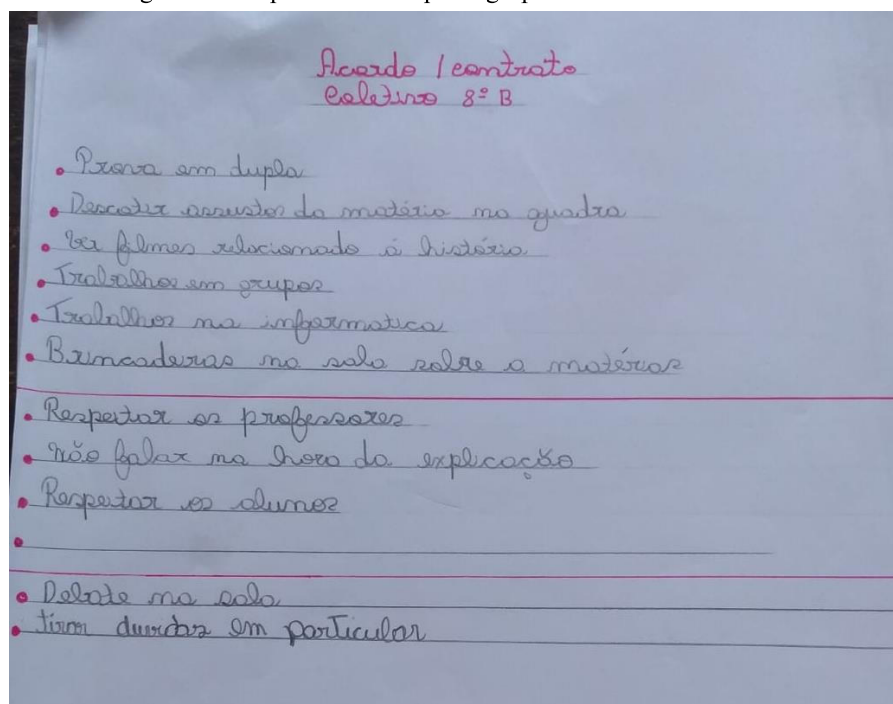 Acordo / contrato
Coletivo 8º B
• Prova em dupla
• Descutir assustos da matéria na quadra
• Ver filmes relacionado á história
• Trabalhos em grupos
• Trabalhos na informatica
• Brincaderas na sala sobre a matérias
• Respeitar os professores
• Não falar na hora da explicação
• Respeitar os alunos
•
• Debate na sala
• tirar duvidas em particular